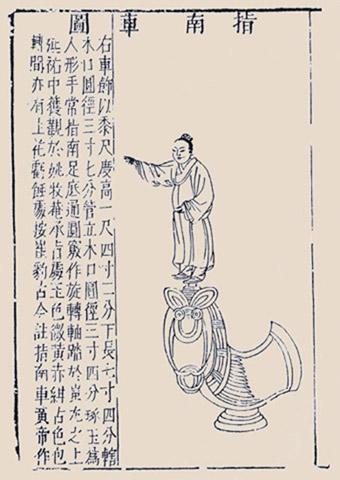 指南車圖
右車飾以黍尺度高一尺四寸二分下長七寸四分轄
木口圓徑三寸七分管立木口圓徑三寸四分琢玉為
人形手常指南足底通圓竅作旋轉軸踏於蚩尤之上
延祐中獲觀於姚牧菴承旨處玉色微黃赤紺古色包
轉間亦有土花繡蝕處按崔豹古今註指南車黃帝作